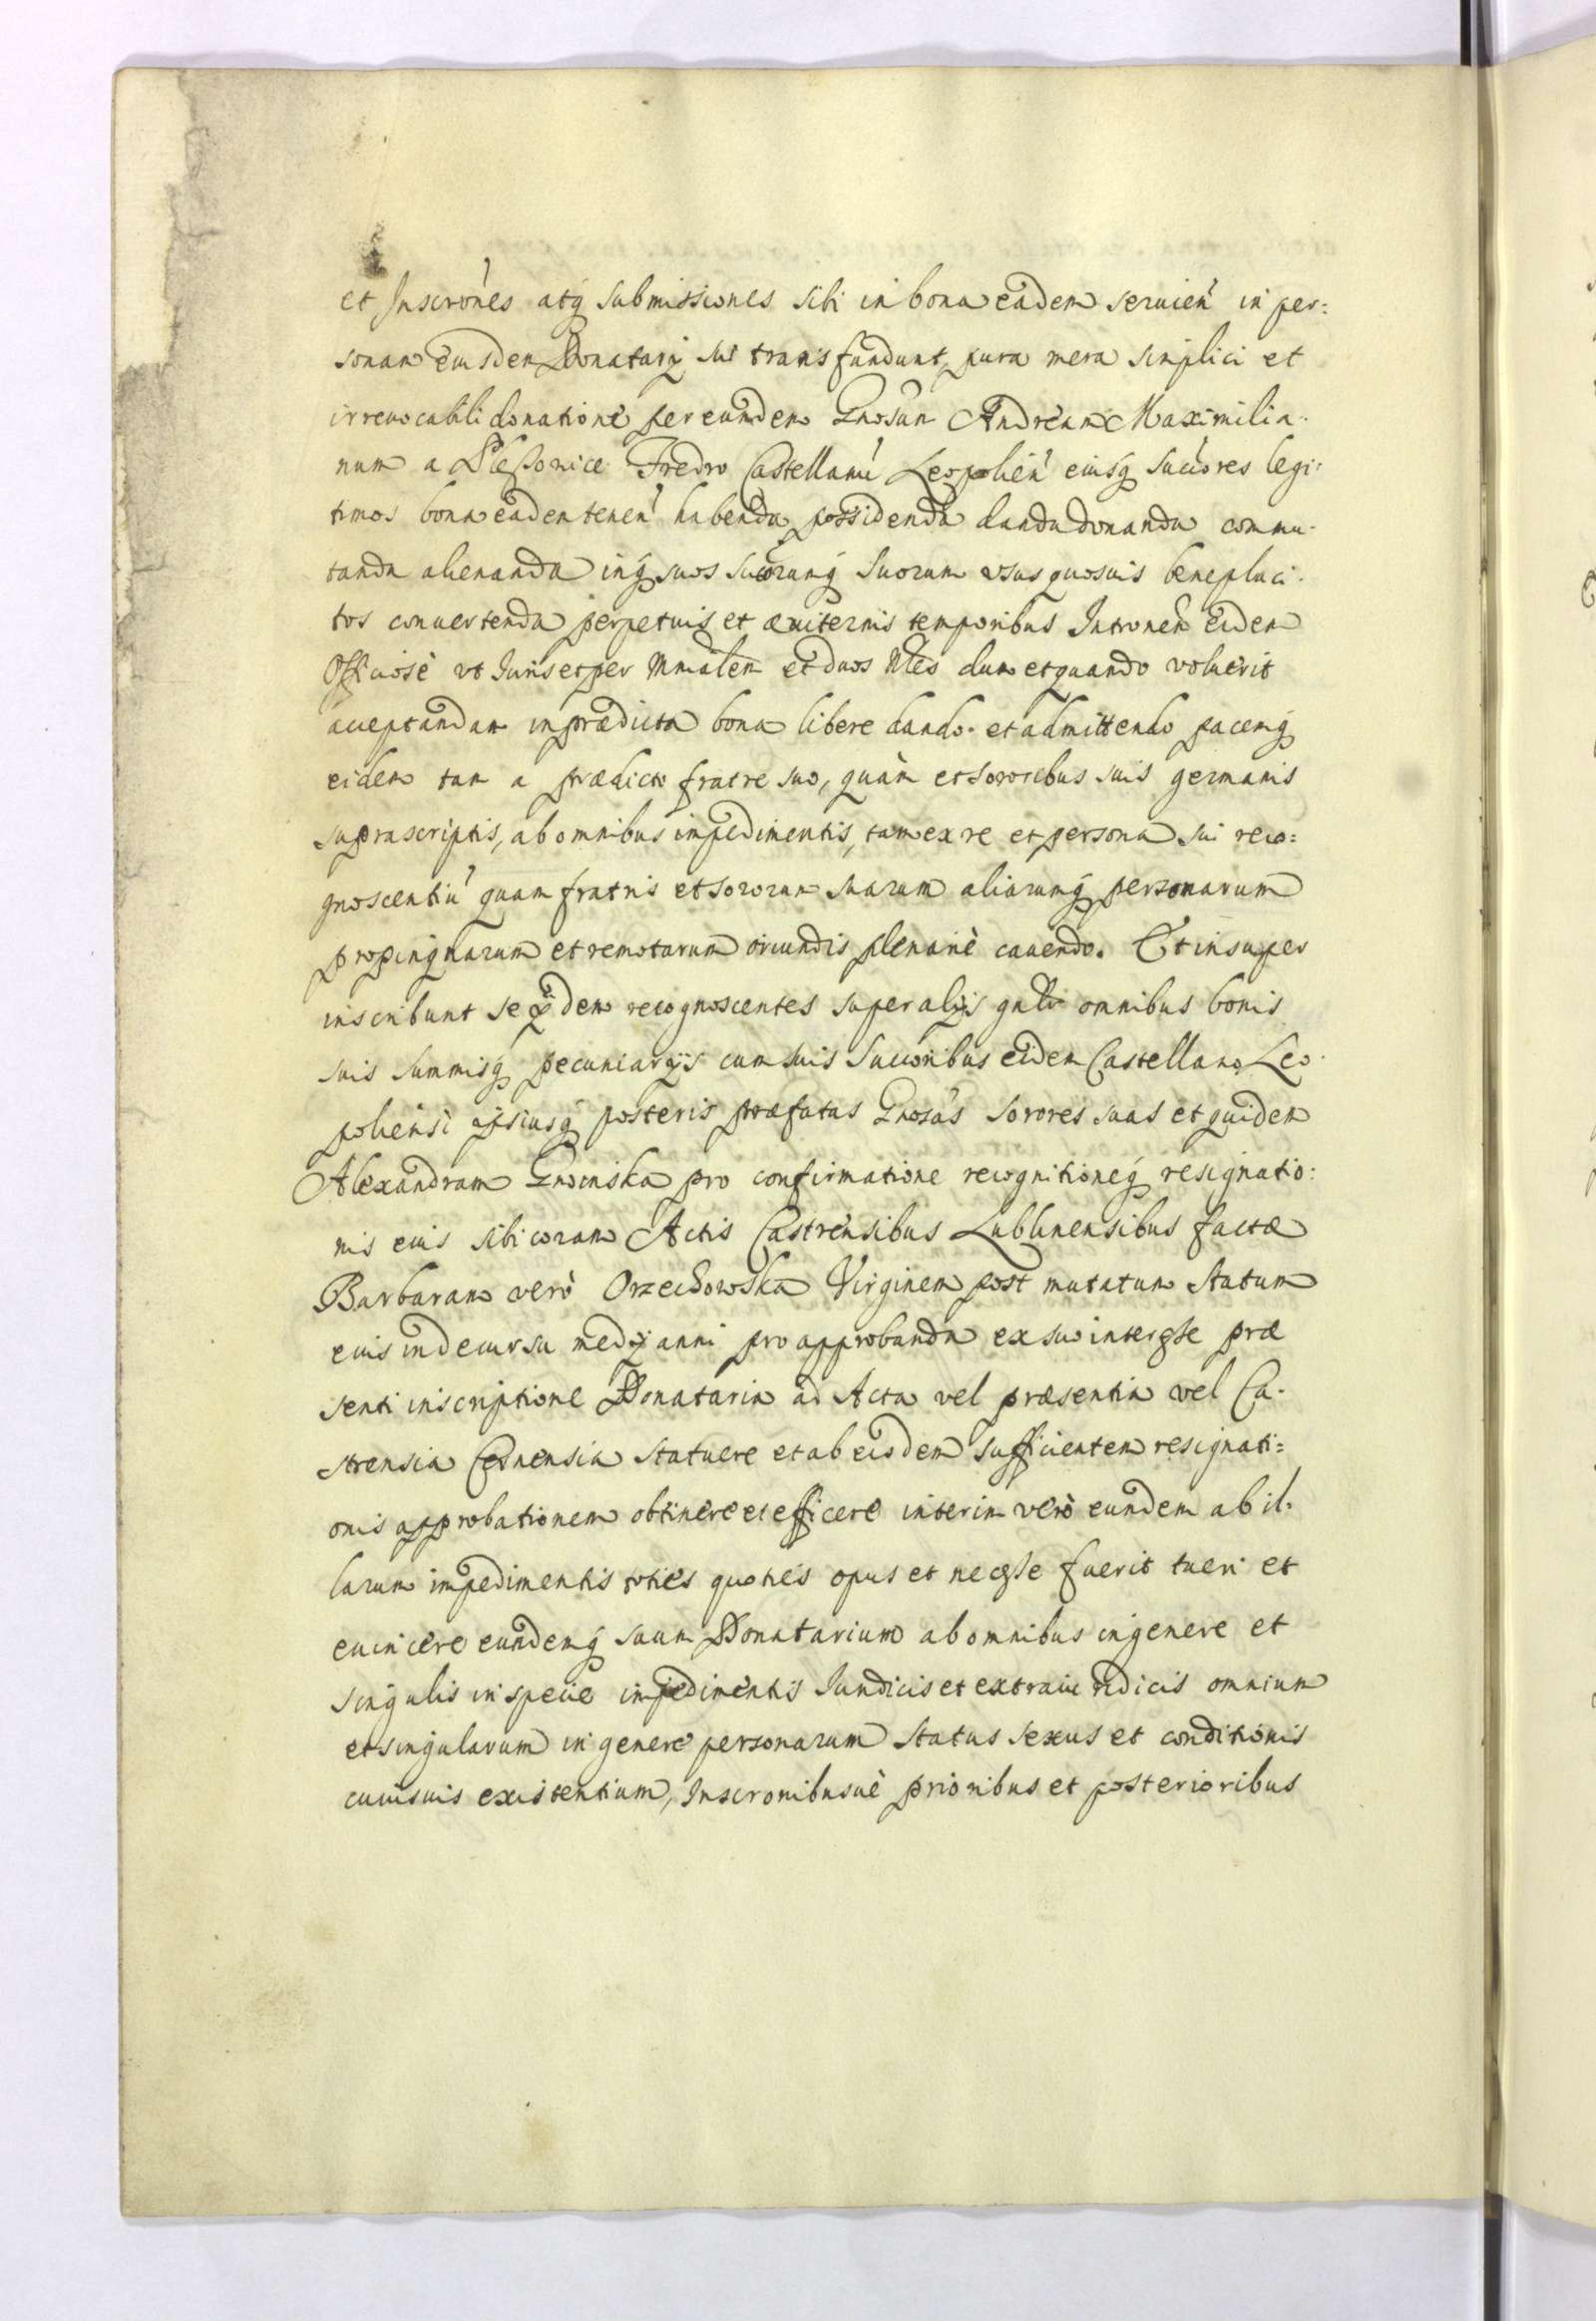 et Inscrones atq submissiones sibi in bona eadem seruien in per:
sonam eiusdem Donatarij sui transfundunt, pura mera simplici et
irreuocabili donatione per eundem Gnosum Andream Maximilia.
num a Pleszowice Fredro Castellanu Leopolien eiusq succores legi:
timos bona eadem tenen habenda possidenda danda donanda commu.
tanda alienanda inq suos succorumq suorum vsus quosuis beneplaci.
tos conuertenda perpetuis et æuiternis temporibus Intronem eidem
Officiose vt Iuris et per Mnialem et duos Nbles dum et quando voluerit
acceptandam in prædicta bona libere dando. et admittendo pacemq
eidem tam a prædicto fratre suo, quàm et sororibus suis germanis
suprascriptis, ab omnibus impedimentis, tam ex re et persona sui reco:
gnoscentiu quam fratris et sororum suarum aliarumq personarum
propinquarum et remotarum oriundis plenariè cauendo. Et insuper
inscribunt se ijdem recognoscentes super alijs gnlr omnibus bonis
suis summisq pecuniarijs cum suis succoribus eidem Castellano Leo.
poliensi ipsiusq posteris præfatas Gnosas sorores suas et quidem
Alexandram Gnoinska pro confirmatione recognitioneq resignatio:
nis eius sibi coram Actis Castrensibus Lublinensibus factæ
Barbaram verò Orzechowska Virginem post mutatum statum
eius in decursu medij anni pro approbanda ex suo interesse præ
senti inscriptione Donataria ad Acta vel præsentia vel Ca.
strensia statuere et ab eisdem sufficientem resignati:
onis approbationem obtinere et efficere interim verò eundem ab il.
larum impedimentis toties quoties opus et necesse fuerit tueri et
euincere eundemq suum Donatarium ab omnibus in genere et
singulis in specie impedimentis Iuridicis et extraiuridicis omnium
et singularum in genere personarum status sexus et conditionis
cuiusuis existentium, Inscronibusuè prioribus et posterioribus